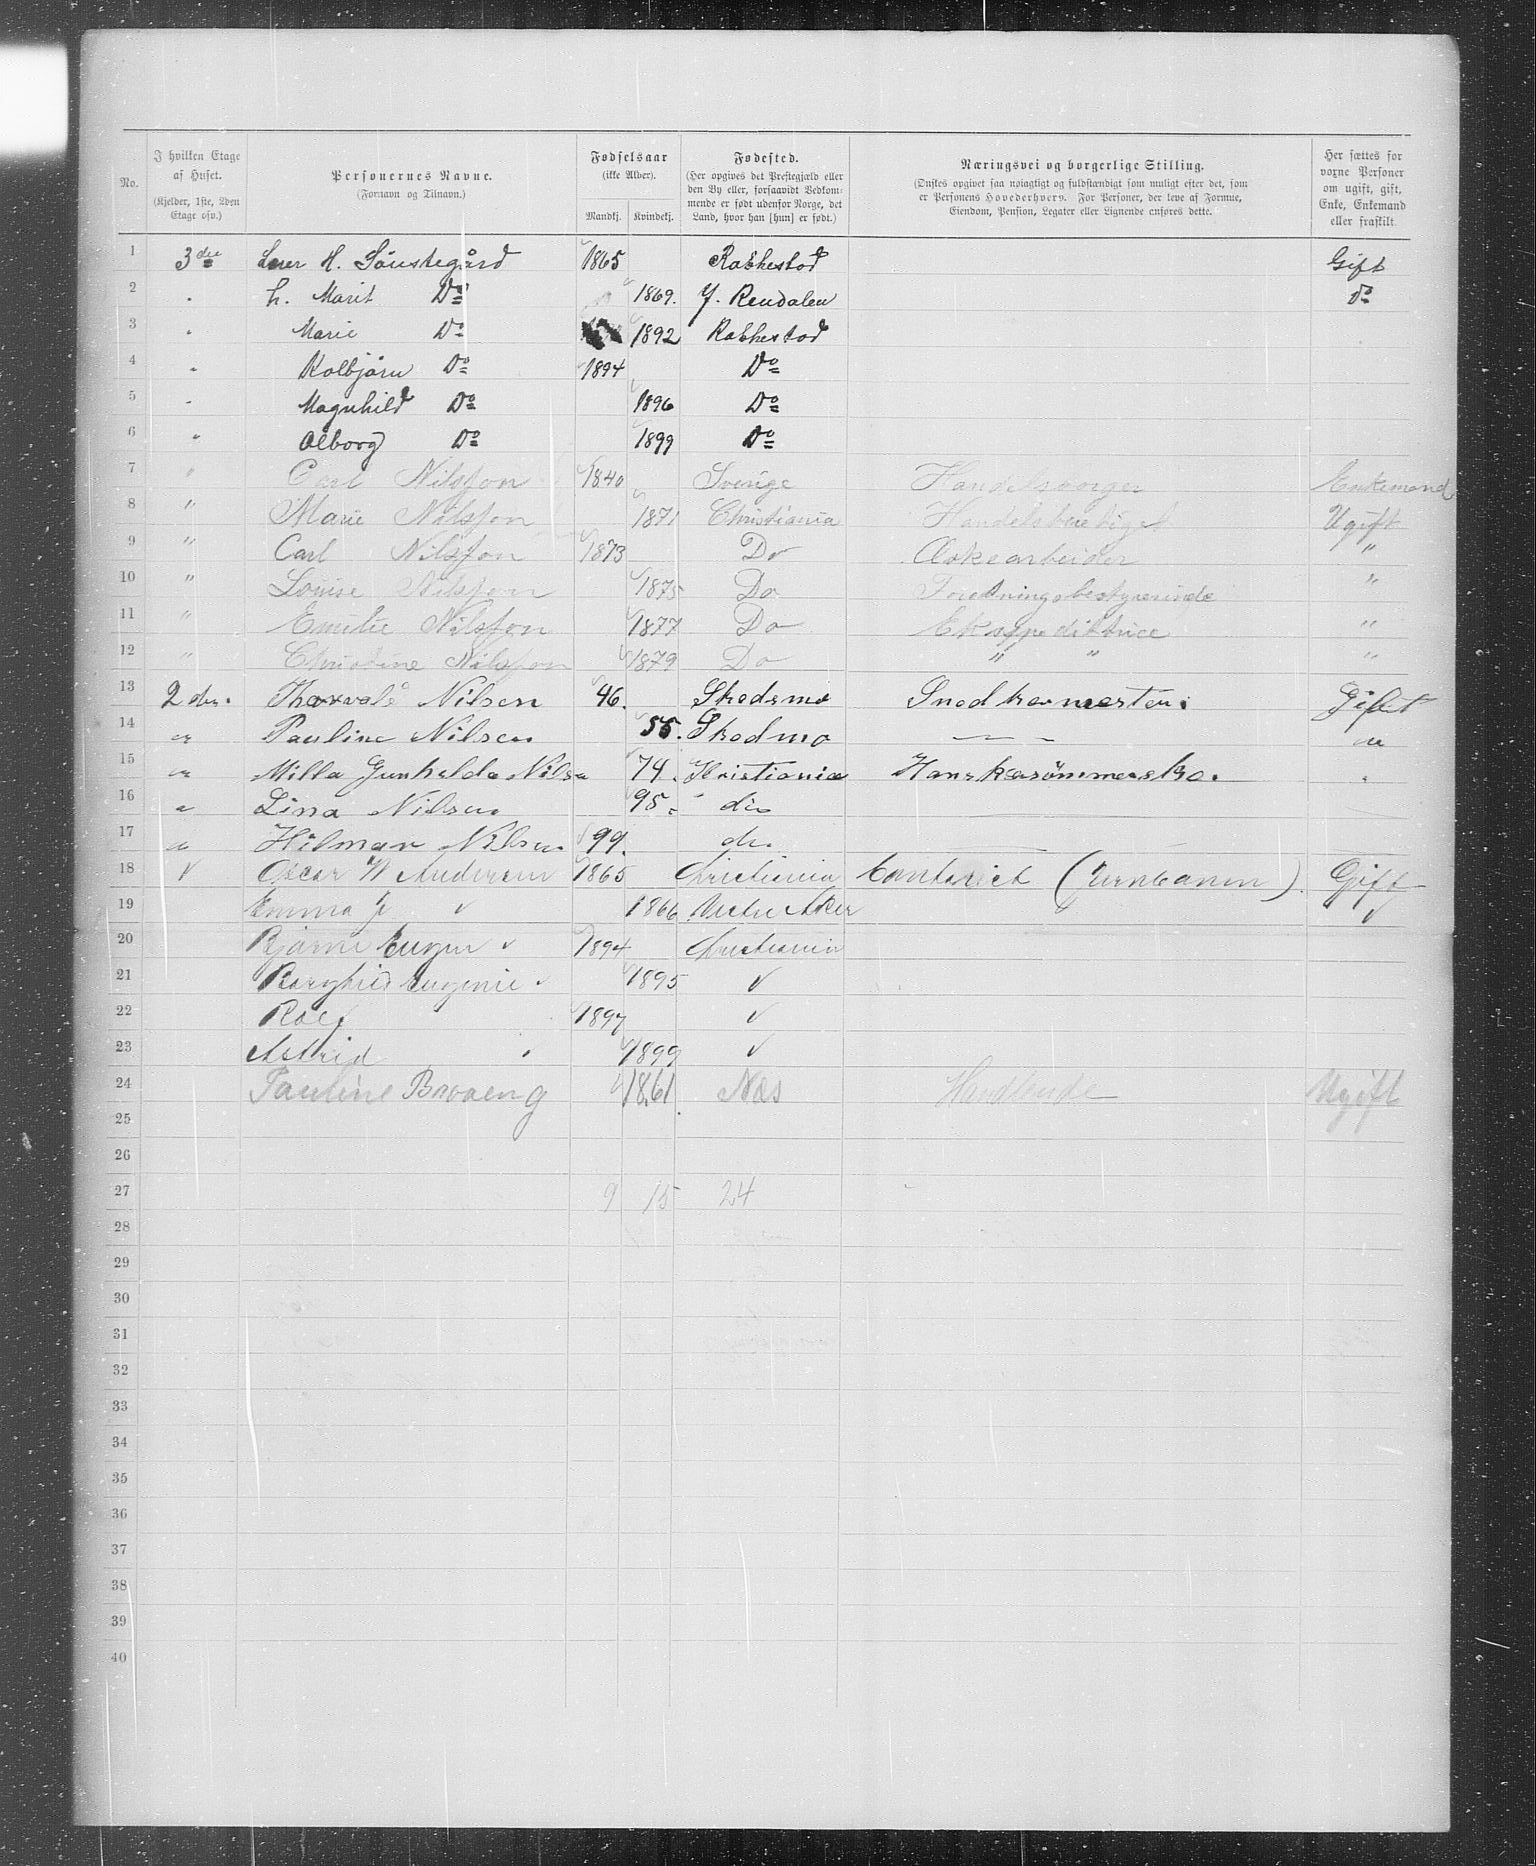 No.
I hvilken Etage af Huset. (Kjelder, 1ste, 2den Etage osv.)
Personernes Navne. (Fornavn og Tilnavn.)
Fødselsaar (ikke Alder). Mandkj. Kvindekj.
Fødested. (Her opgives det Prestegjæld eller den By eller, forsaavidt Vedkommende er født udenfor Norge, det Land, hvor han [hun] er født.)
Næringsvei og borgerlige Stilling. (Ønskes opgivet saa nøiagtigt og fuldstændigt som muligt efter det, som er Personens Hovederhverv. For Personer, der leve af Formue, Eiendom, Pension, Legater eller Lignende anføres dette.)
Her sættes for voxne Personer om ugift, gift, Enke, Enkemand eller fraskilt.
1 3die H. 1865 Gift
2 " h. Marit Do 1869. Y. Rendalen Do
3 " Marie Do 1892
4 " Kolbjørn Do 1894 Do
5 " Magnhild Do 1896 Do
6 " Ålborg Do 1899 Do
7 " Carl Nilsson 1840 Sverige Handelsborger Enkemand
8 " Marie Nilsson 1871 Christiania Ugift
9 " Carl Nilsson 1873 Do "
10 " Louise Nilsson 1875 Do Forretningsbestyrerinde "
11 " Emilie Nilsson 1877 Do Ekspeditrice "
12 " Christine Nilsson 1879 Do " " "
13 2den. Thorvald Nilsen 46. Skedsmo Snedkermester. Gift
14 " Pauline Nilsen 55. Skedmo — — — "
15 " Milla Gunhilda Nilsen 74. Kristiania Hanskesømmerske.
16 " Lina Nilsen 95. do
17 " Hilmar Nilsen 99. do.
18 Oscar W Andersen 1865 Christiania Contorist (Jernbanen). Gift
19 Emma J. 1866 Vestre Aker
20 Bjarne Eugen 1894 Christiania
21 Borghild Eugenie 1895
22 Rolf 1897
23 Astrid 1899
24 Pauline 1861. Næs Handlende Ugift
25
26
27 9 15 24
28
29
30
31
32
33
34
35
36
37
38
39
40